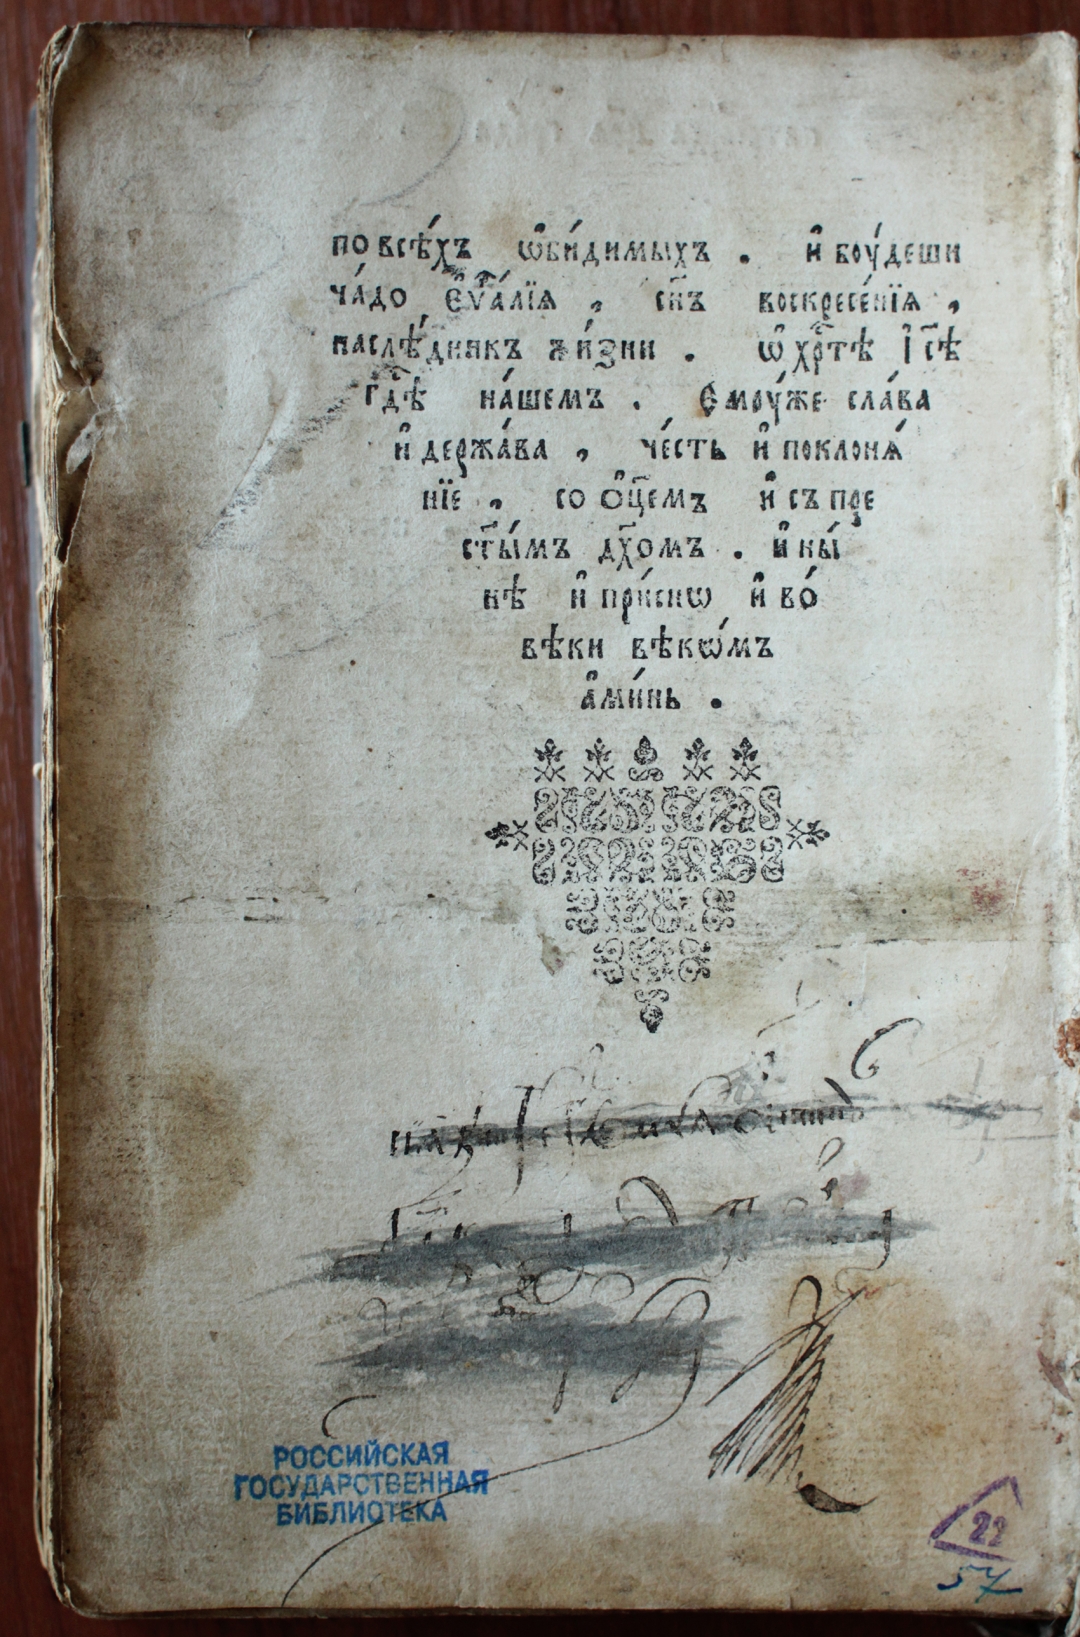 по всѣ́хъ ѡ҆би́димыхъ . и҆ боу́деши
ча́до є҆ѵⷢ҇а́лїѧ , сн҃ъ воскресе́нїѧ ,
наслѣ́дникъ жи́зни . ѡ҆ хрⷭ҇тѣ і҆с҃ѣ
гдⷭ҇ѣ на́шемъ . Ємоу́же сла́ва
и҆ держа́ва , че́сть и҆ поклонѧ́
нїе , со ѻ҆ц҃емъ и҆ съ пре
ст҃ы́мъ дх҃омъ . и҆ ны́
нѣ и҆ при́снѡ и҆ во́
вѣки вѣкѡ́мъ
а҆ми́нь .
РОССИЙСКАЯ
ГОСУДАРСТВЕННАЯ
БИБЛИОТЕКА
22
57